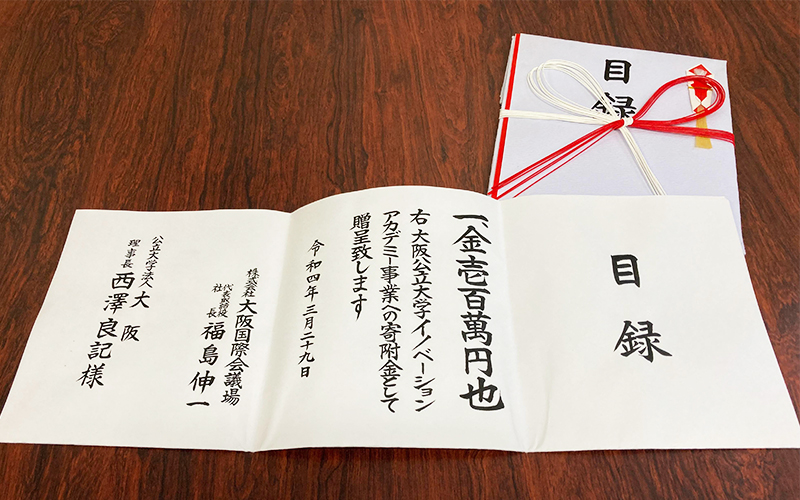 目録
目録
一、金壱百萬円也
右 大阪公立大学イノベーション
アカデミー事業への寄附金として
贈呈致します
令和四年三月二十九日
株式会社 大阪国際会議場
代表取締役
社長 福島伸一
公立大学法人 大阪
理事長 西澤良記様